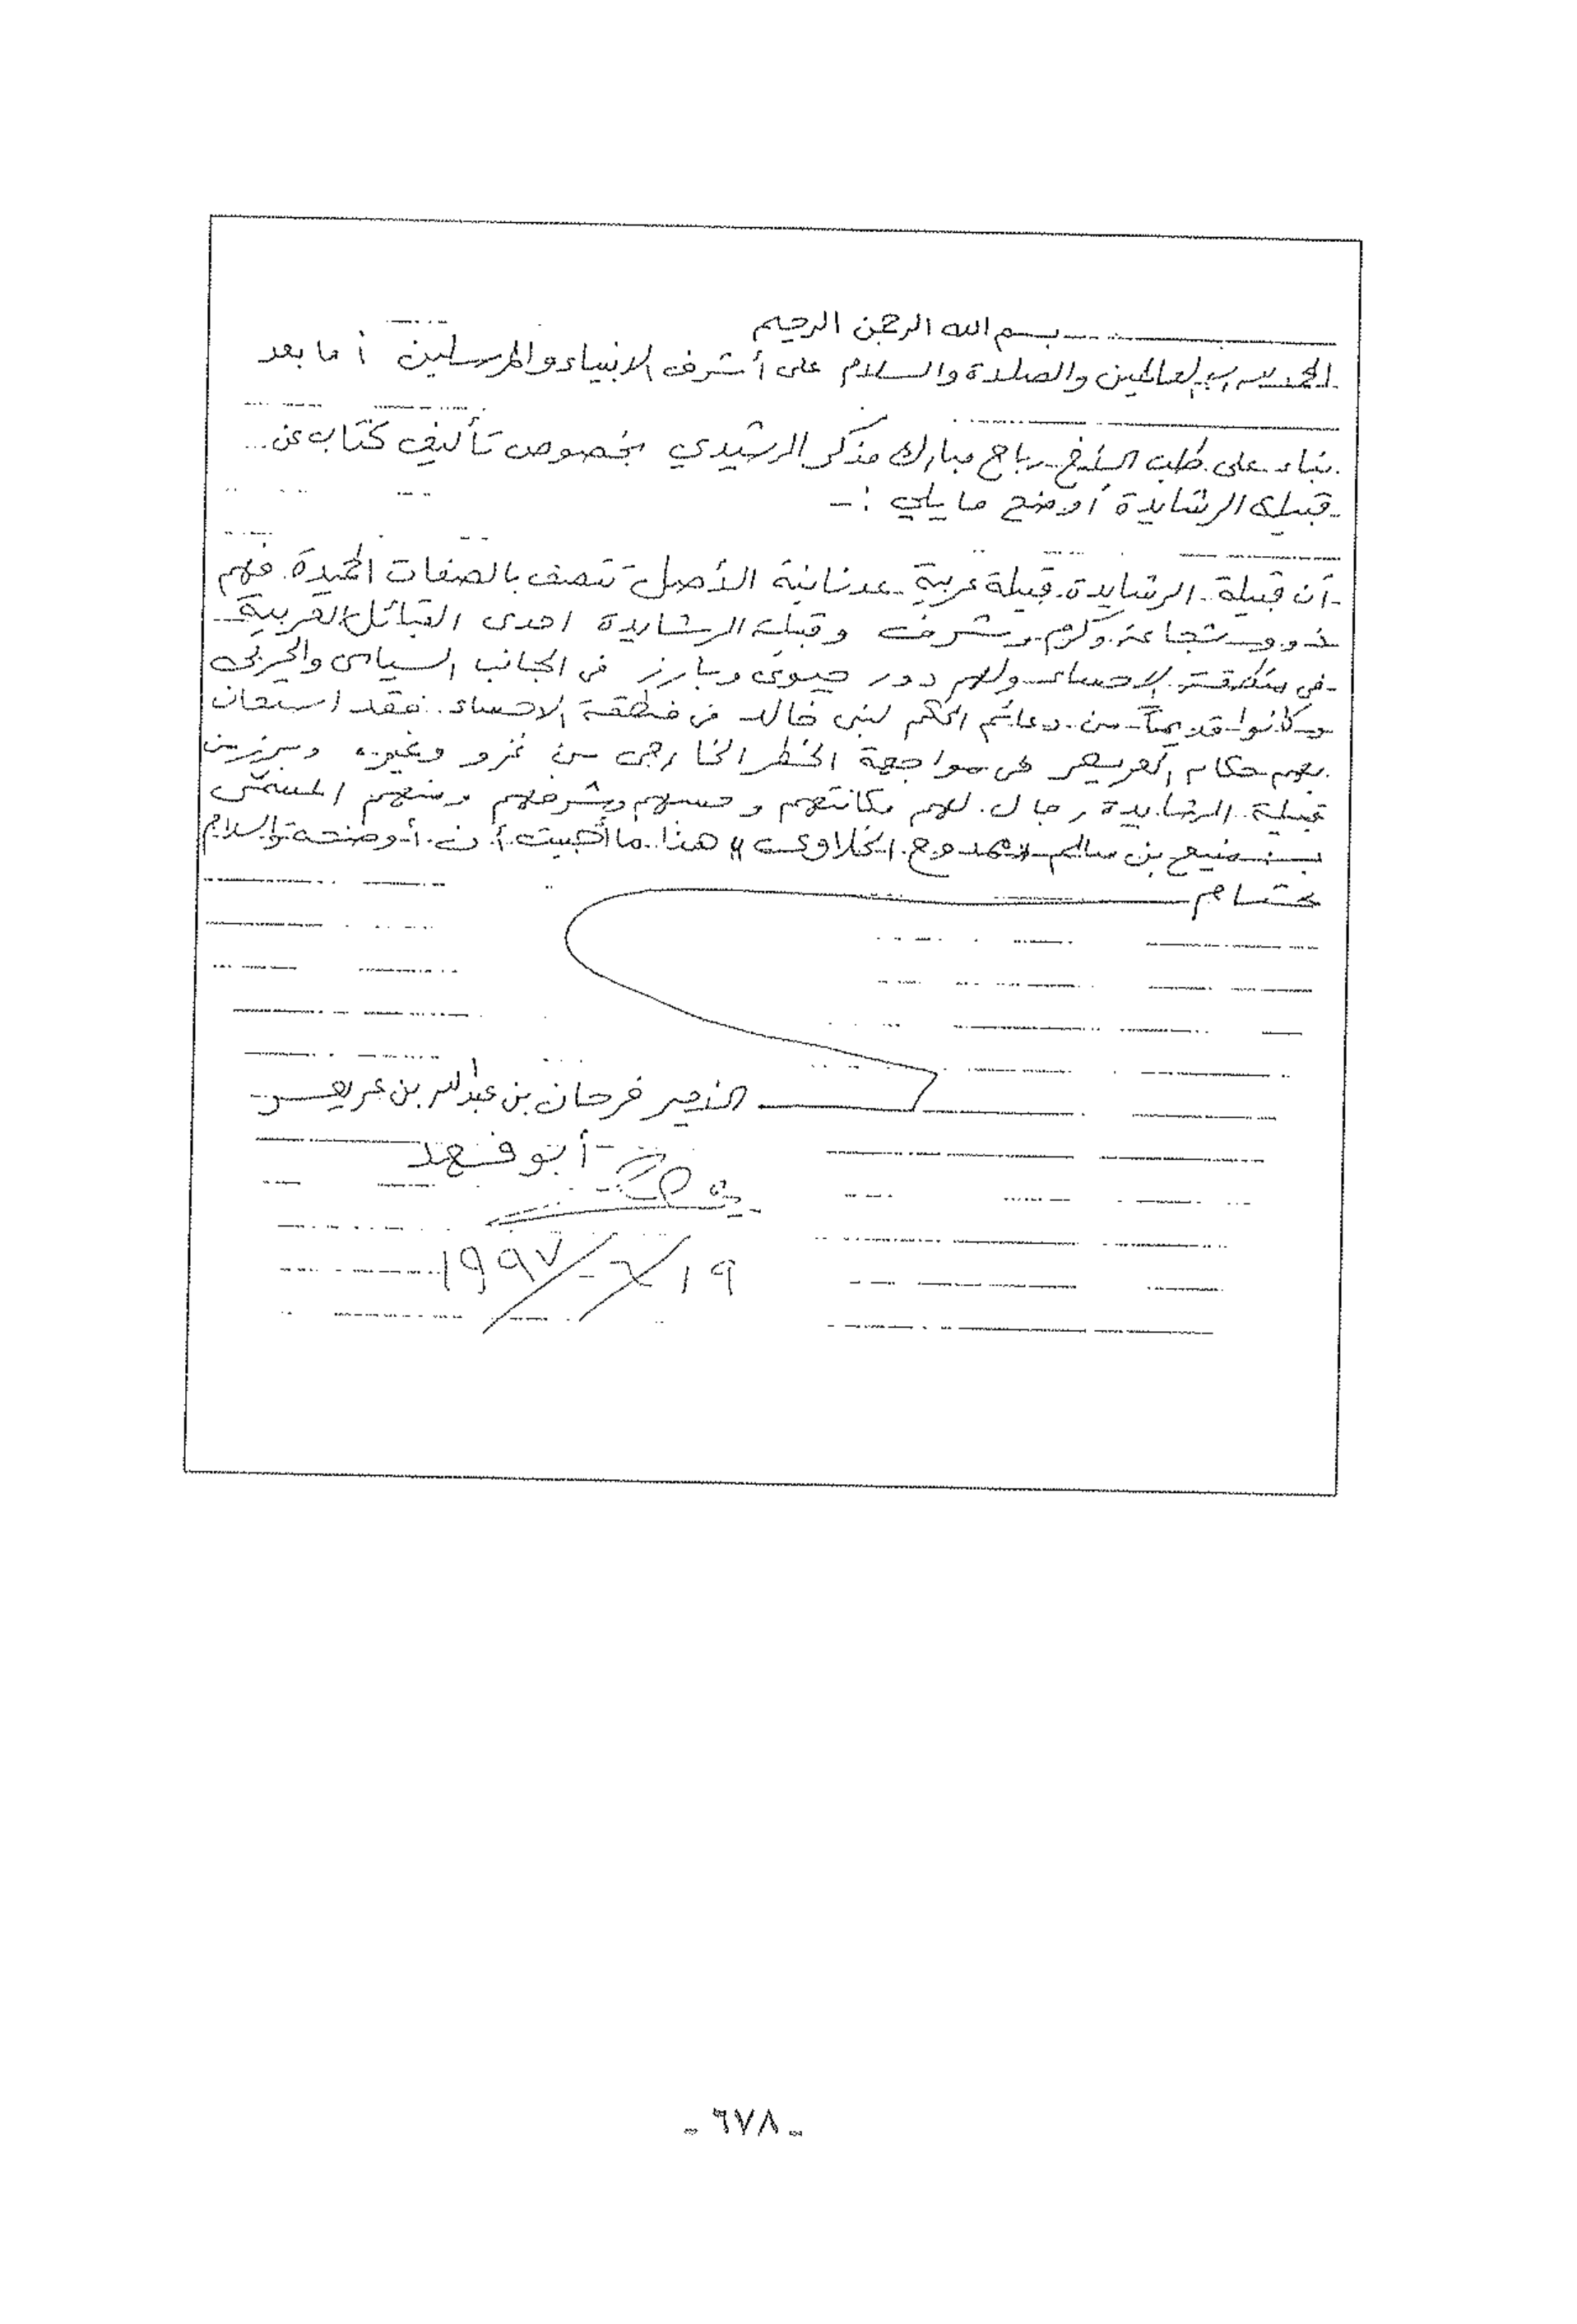 بسم الله الرحمن الرحيم
الحمد لله رب العالمين والصلاة والسلام على أشرف الانبياء والمرسلين أما بعد
بناء على طلب الشيخ رباح مبارك مذكر الرشيدي بخصوص تأليف كتاب عن
قبيلة الرشايدة أوضح ما يلي :-
أن قبيلة الرشايدة قبيلة عربية عدنانية الأصل تتصف بالصفات الحميدة فهم
ذوو شجاعة وكرم وشرف وقبيلة الرشايدة احدى القبائل العربية
في منطقة الاحساء ولهم دور حيوي وبارز في الجانب السياسي والحربي
وكانوا قديماً من دعائم الحكم لبني خالد في منطقة الاحساء فقد استعان
بهم حكام العريعر في مواجهة الخطر الخارجي من غزو وغيره وبرز من
قبيلة الرشايدة رجال لهم مكانتهم وحسبهم وشرفهم ومنهم
بن منيع بن سالم الخلاوي هذا ما أحببت أن أوضحه والسلام
ختام
الأمير فرحان بن عبدالله بن عريعر
أبو فهد
١٩/٦/١٩٩٧
- ٦٧٨ -